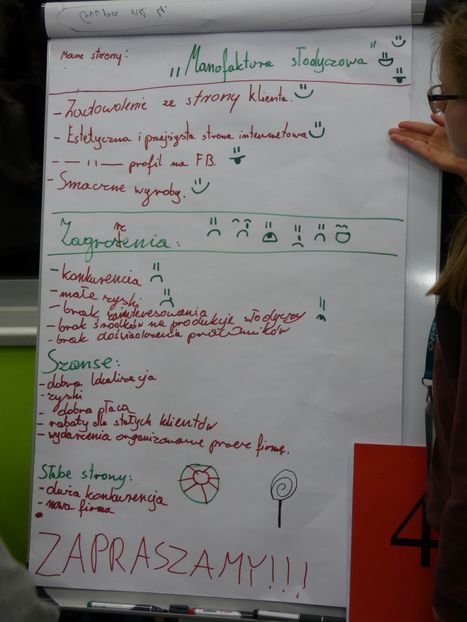 Grupa nr 4.
Mocne strony:
„Manofaktura słodyczowa"
- Zadowolenie ze strony klienta.
- Estetyczna i przejrzysta strona internetowa
- — 11 — profil na FB.
- Smaczne wyroby.
Zagrożenia:
- konkurencia
- małe zyski
- brak zainteresowania
- brak środków na produkcję słodyczy
- brak doświadczenia pracowników
Szanse:
- dobra lokalizacja
- zyski
- dobra płaca
- rabaty dla stałych klientów
- wydarzenia organizowane przez firmę.
Słabe strony:
- duża konkurencja
- nowa firma
-
ZAPRASZAMY!!!
4